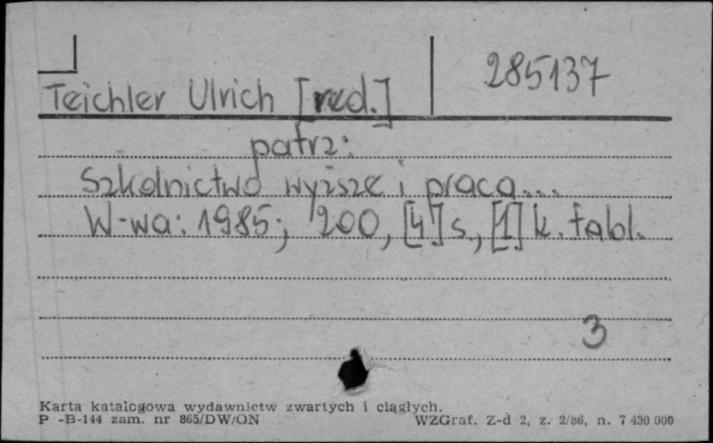 285137
Teichler Ulrich [red.]
patrz:
Szkolnictwo wyższe i praca...
W-wa: 1985; 200, [4] s., [1] k. tabl.
3
Karta katalogowa wydawnictw zwartych i ciągłych.
P -B-144 zam. nr 865/DW/ON
WZGraf. Z-d 2, z. 2/86, n. 7 430 000